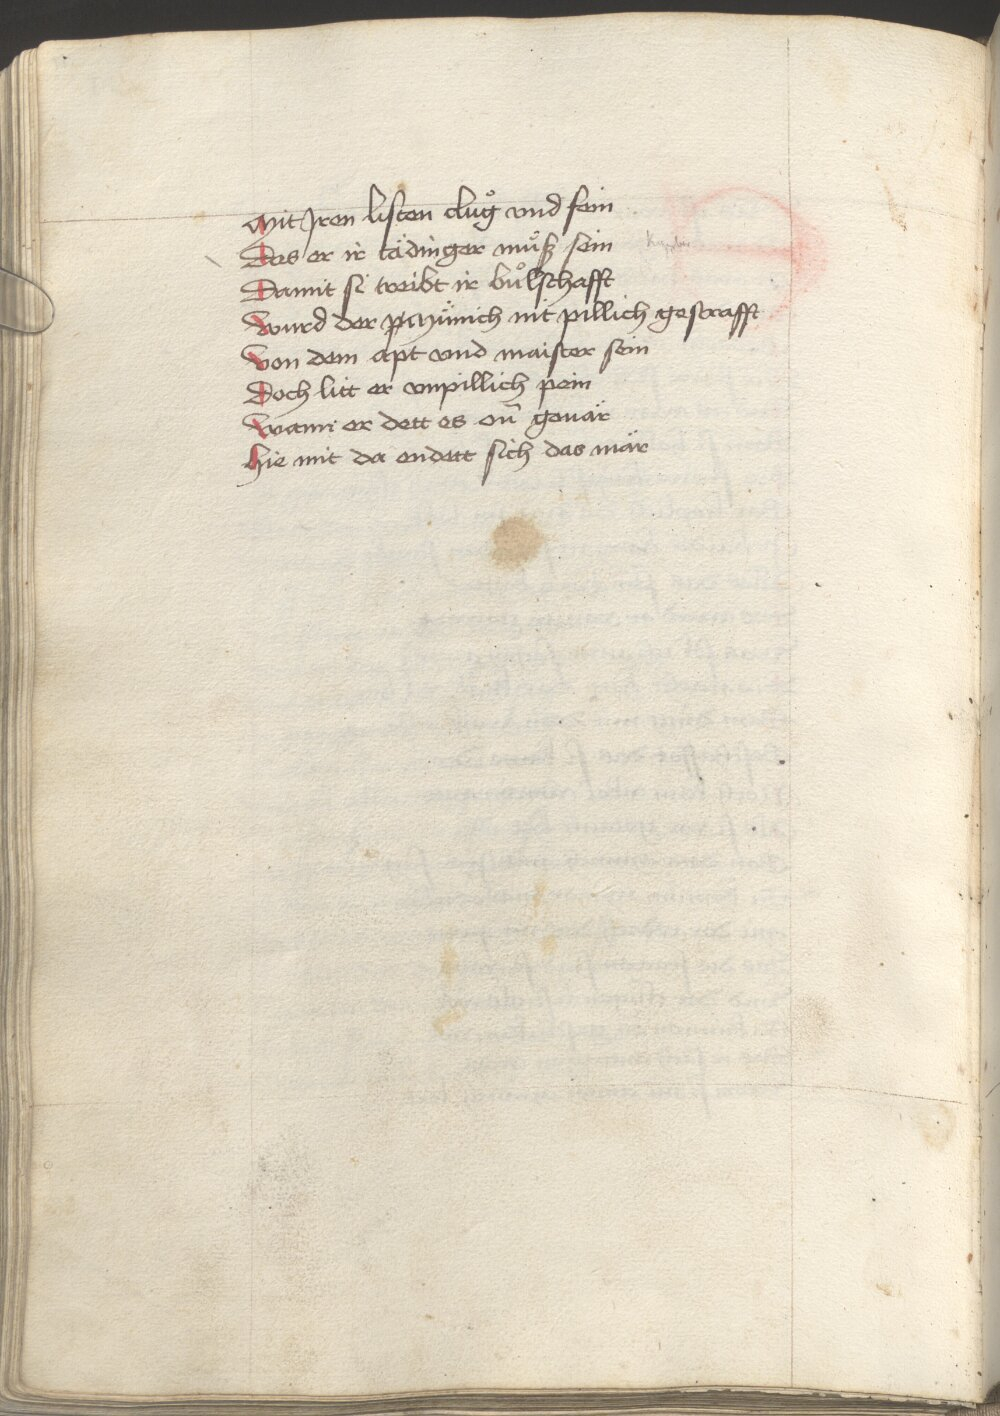 Mit Jren listen clůg vnd fein
Das er ir tädinger můß sein
Damit si treibt ir bůlschafft
Wurd der münich nit pillich gestrafft
Von dem apt vnd maister sein
Doch litt er vnpillich pein
Wann er dett es on̄ geuär
Hie mit da endett sich das mär